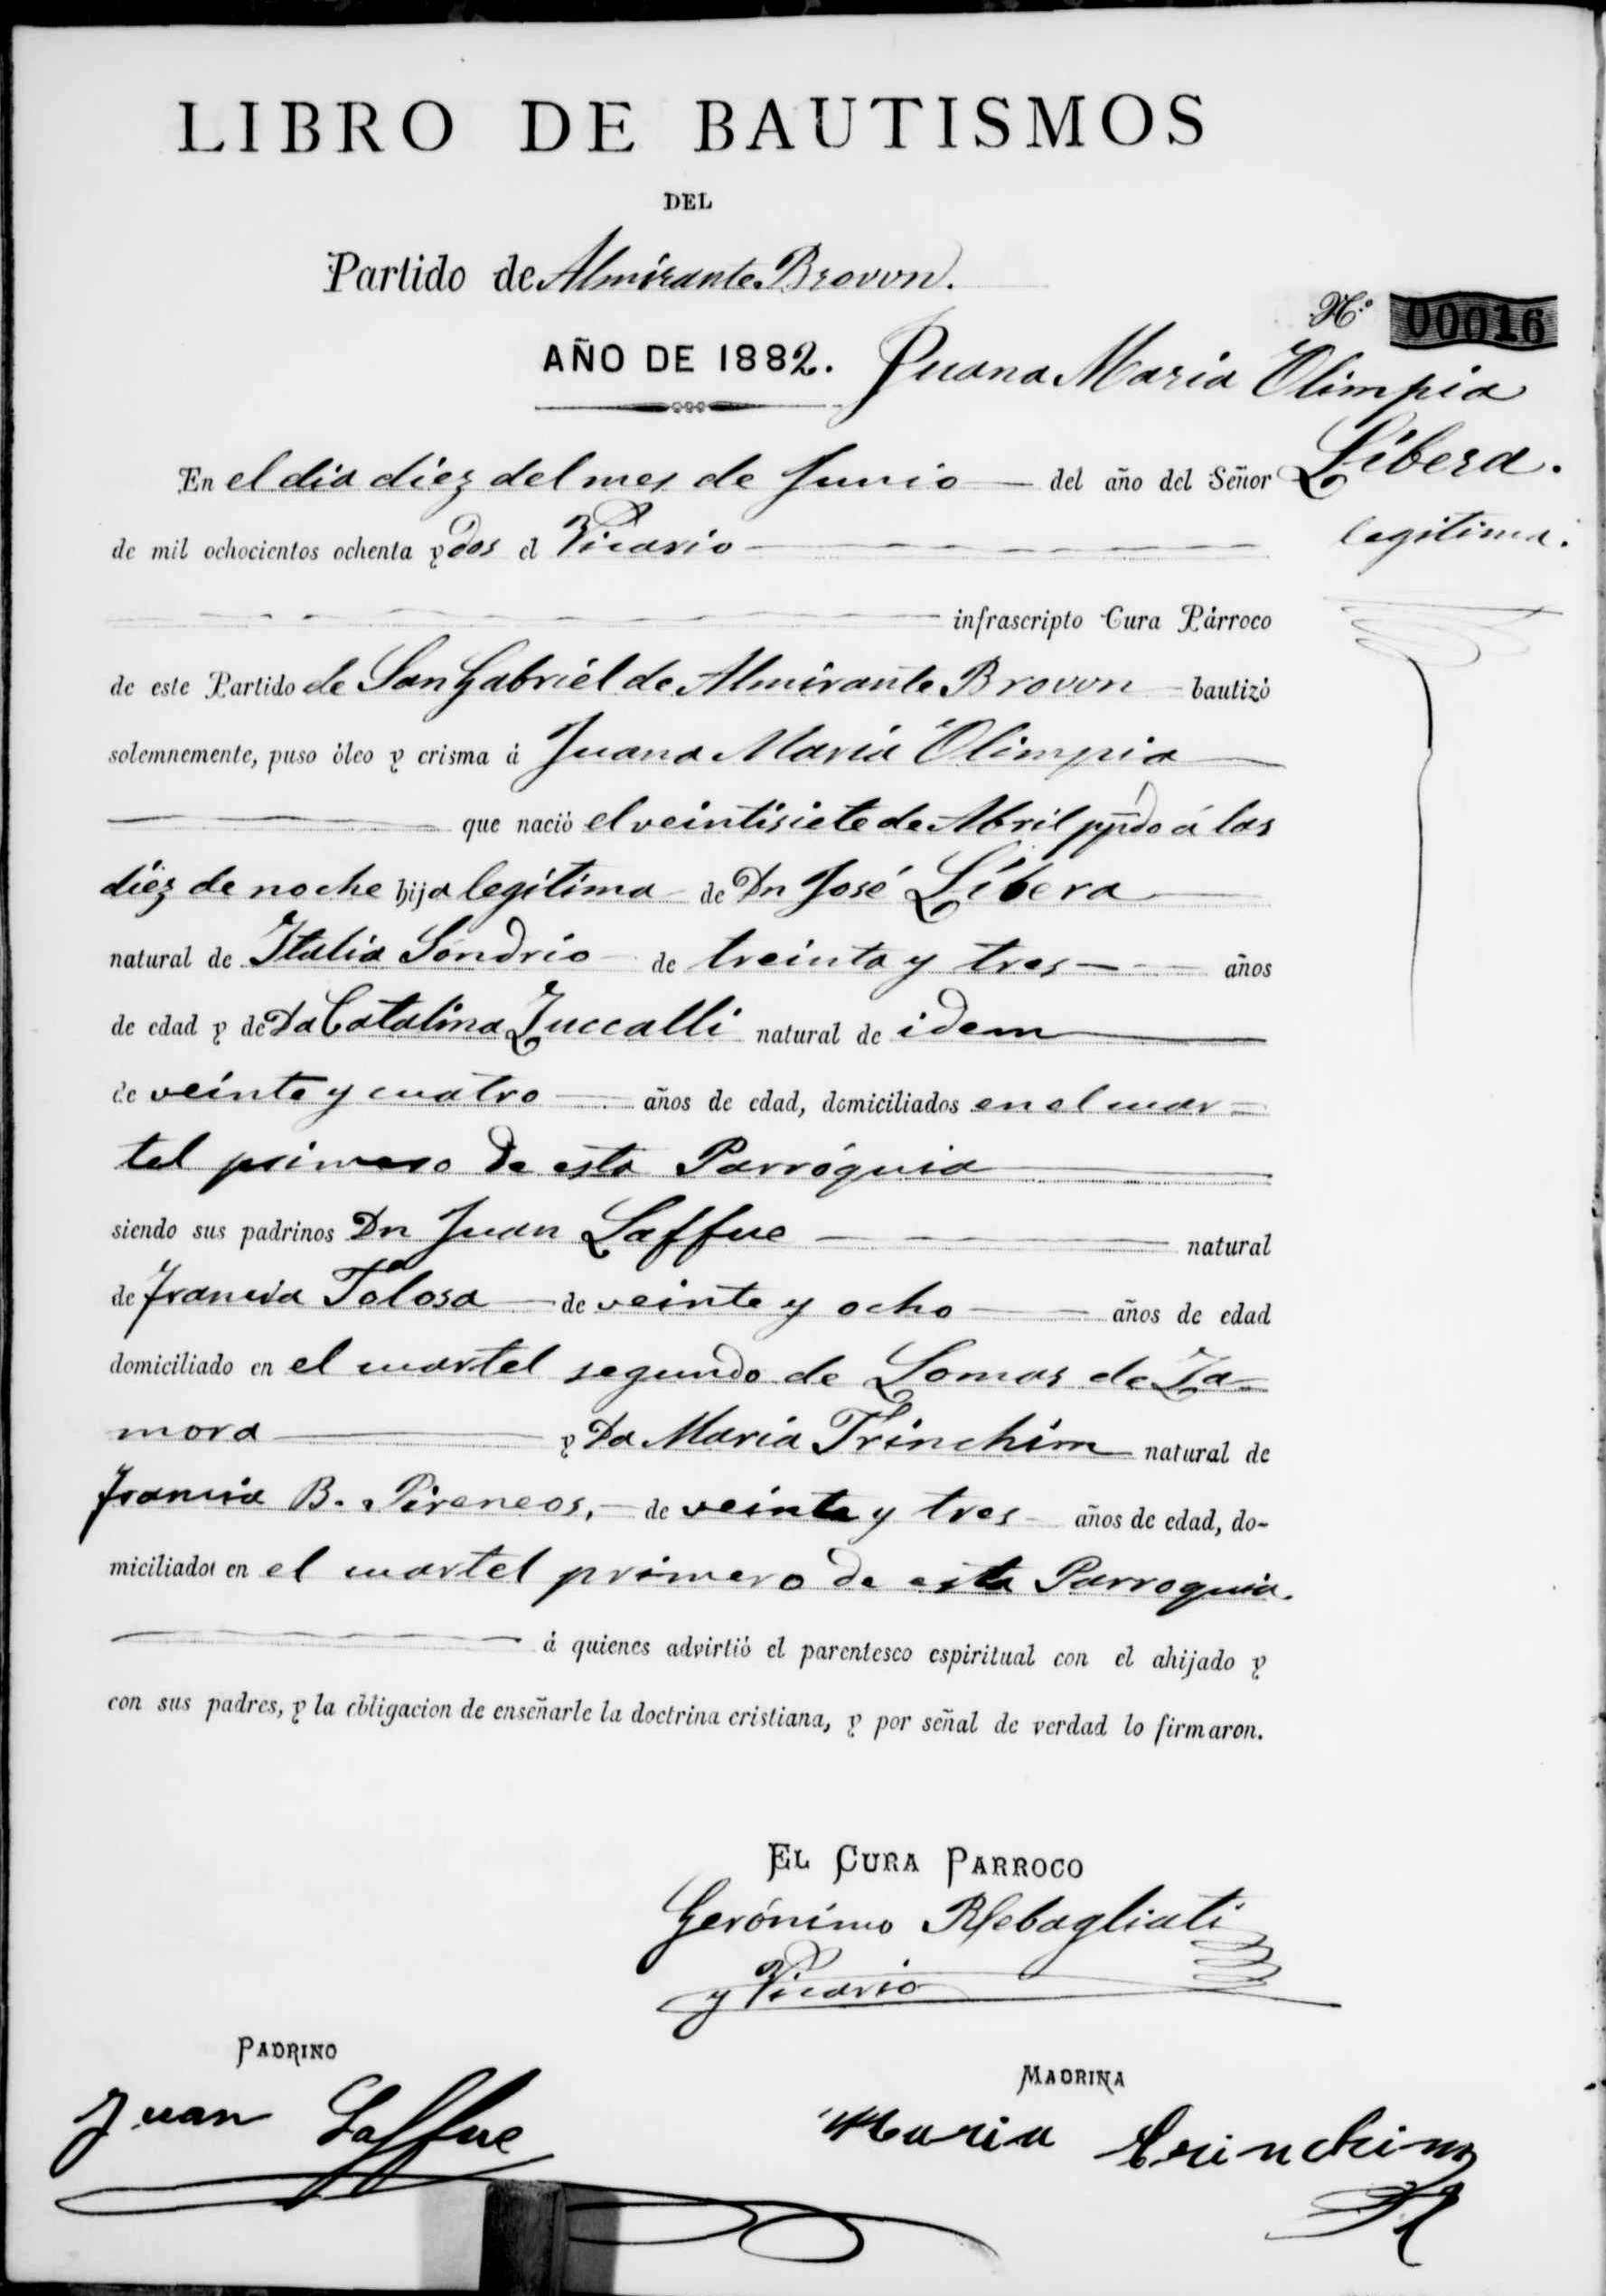 LIBRO DE BAUTISMOS
DEL
Partido de Almirante Brown.
Nº 00016
AÑO DE 1882.
Juana Maria Olimpia
Líbera.
legitima.
En el dia diez del mes de Junio — del año del Señor
de mil ochocientos ochenta y dos el Vicario
infrascripto Cura Párroco
de este Partido de San Gabriel de Almirante Brown bautizó
solemnemente, puso óleo y crisma á Juana Maria Olimpia
que nació el veintisiete de Abril ppdo á las
diez de noche hija legítima de Dn José Líbera
natural de Italia Sondrio de treinta y tres años
de edad y de Da Catalina Zuccalli natural de idem
de veinte y cuatro años de edad, domiciliados en el cuar=
tel primero de esta Parróquia
siendo sus padrinos Dn Juan Laffue natural
de Francia Tolosa de veinte y ocho años de edad
domiciliado en el cuartel segundo de Lomas de Za=
mora y Da Maria Trinchim natural de
Francia B. Pireneos, de veinte y tres años de edad, do-
miciliados en el cuartel primero de esta Parroquia.
á quienes advirtió el parentesco espiritual con el ahijado y
con sus padres, y la obligacion de enseñarle la doctrina cristiana, y por señal de verdad lo firmaron.
EL CURA PARROCO
Gerónimo Rebagliati
y Vicario
PADRINO
Juan Laffue
MADRINA
Maria Trinchim